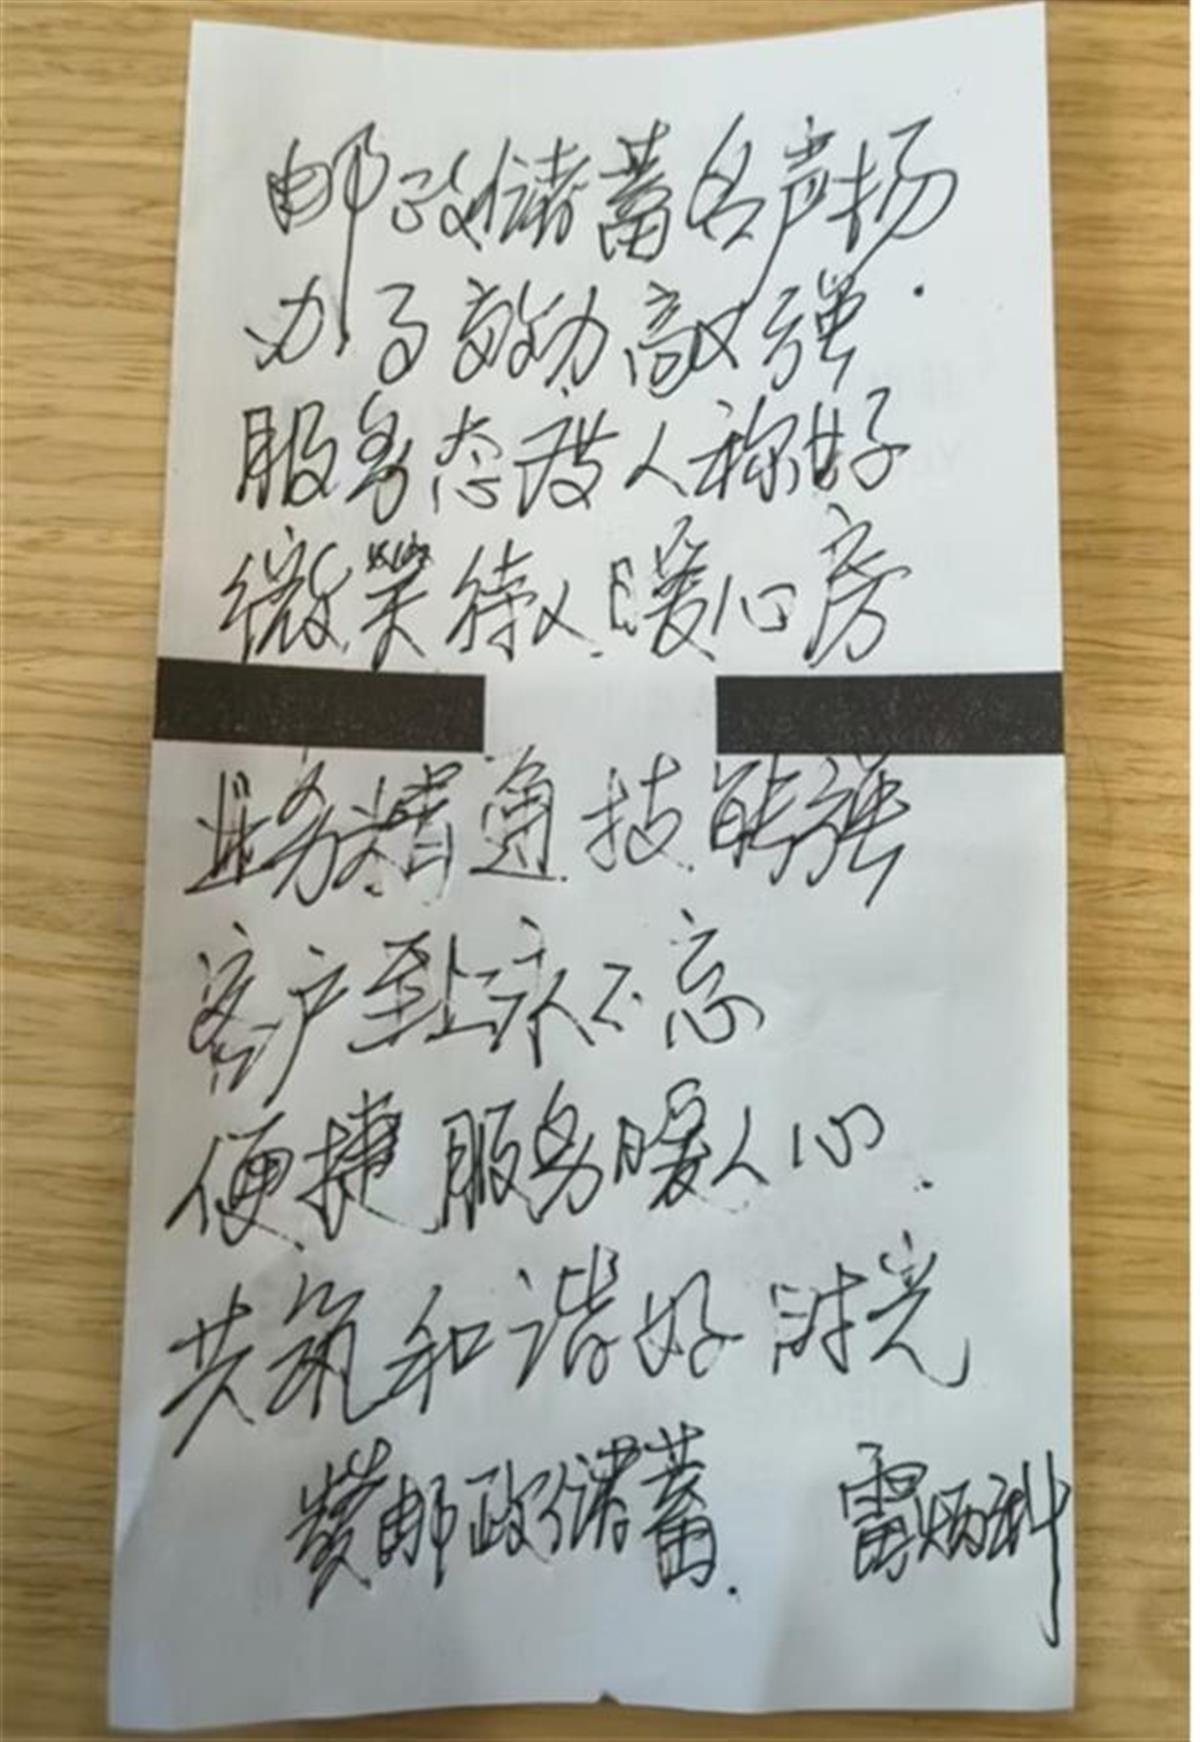 邮政储蓄名声扬.
办了效力高又强
服务态度人称好
微笑待人暖心房
业务精通技能强
客户至上永不忘
便捷服务暖人心.
共筑和谐好时光
赞邮政储蓄. 雷炳科